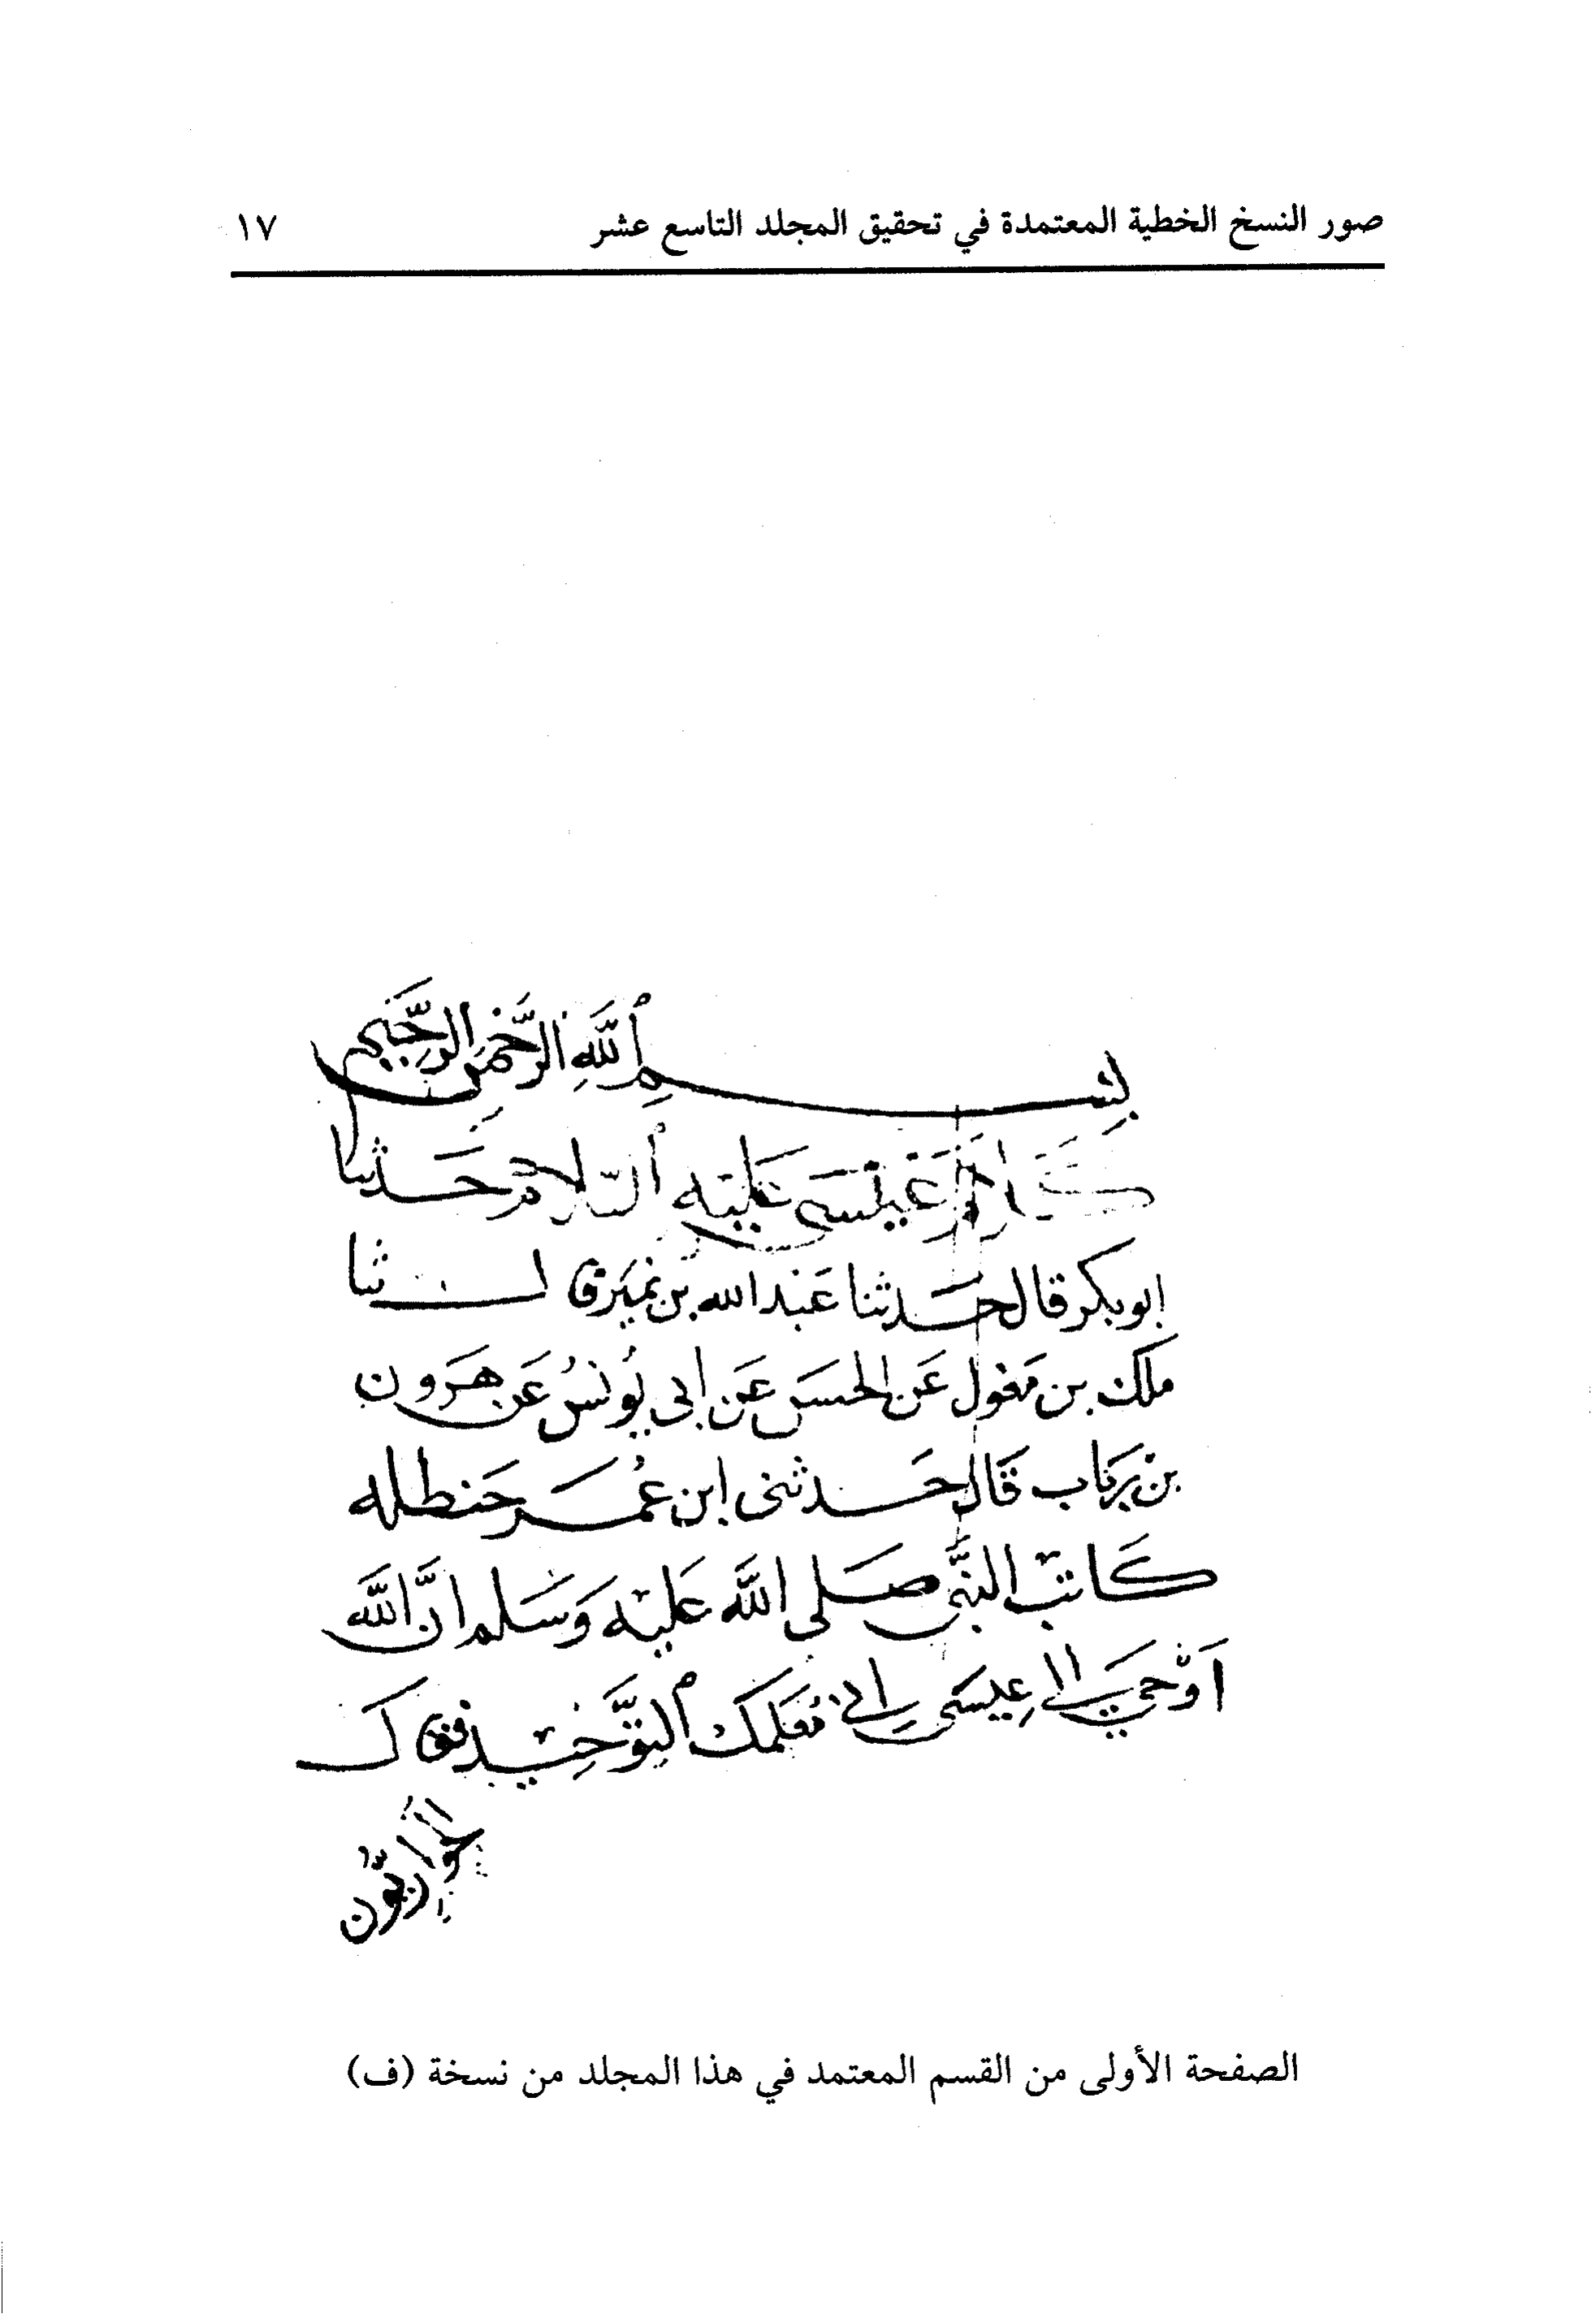 صور النسخ الخطية المعتمدة في تحقيق المجلد التاسع عشر ١٧
بِسْمِ اللَّهِ الرَّحْمَنِ الرَّحِيمِ
كَلَامُ عِيسَى عَلَيْهِ السَّلَامُ حَدثنا
ابو بكر قال حَدثنا عَبْد الله بن نمَير قال ثنا
ملك بن مغول عَن الحسَن عَن ابي يُونسُ عَن هَرَون
بن رياب قَال حَدثنى ابن عُمَر حَنطله
كَاتب النبَّى صَلى اللَّه عَليْه وَسَلم انَّ اللَّه
اَوْحَى الى عِيسَى انى مُعَلمك التوَّحيد فقال
الحَوَاريُّون
الصفحة الأولى من القسم المعتمد في هذا المجلد من نسخة (ف)